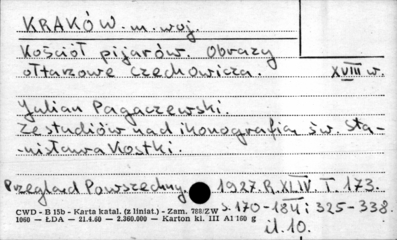 KRAKÓW. m. woj.
Kościół pijarów. Obrazy
ołtarzowe Czechowicza. XVIII w.
Julian Pagaczewski.
Ze studiów nad ikonografią św. Sta-
nisława Kostki.
Przegląd Powszechny. 1927. R. XLIV. T. 173.
s. 170-184 i 325-338.
il. 10.
CWD - B 15b - Karta katal. (z liniat.) - Zam. 788/ZW
1060 — ŁDA — 21.4.60 — 2.360.000 — Karton kl. III A1 160 g